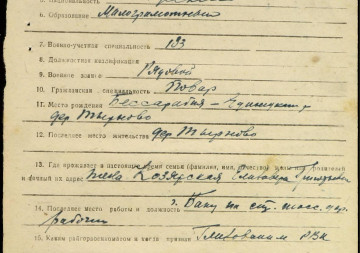 6. Образование Малограмотный
7. Военно-учетная специальность 133
8. Должностная квалификация
9. Военное звание Рядовой
10. Гражданская специальность Повар
11. Место рождения Бессарабия - Единецкий р
дер Тырново
12. Последнее место жительства дер Тырново
13. Где проживает в настоящее время семья (фамилия, имя, отчество жены или родителей)
и точный их адрес жена Козярская
14. Последнее место работы и должность г. Баку на
рабочий
15. Каким райгорвоенкоматом и когда призван РВК